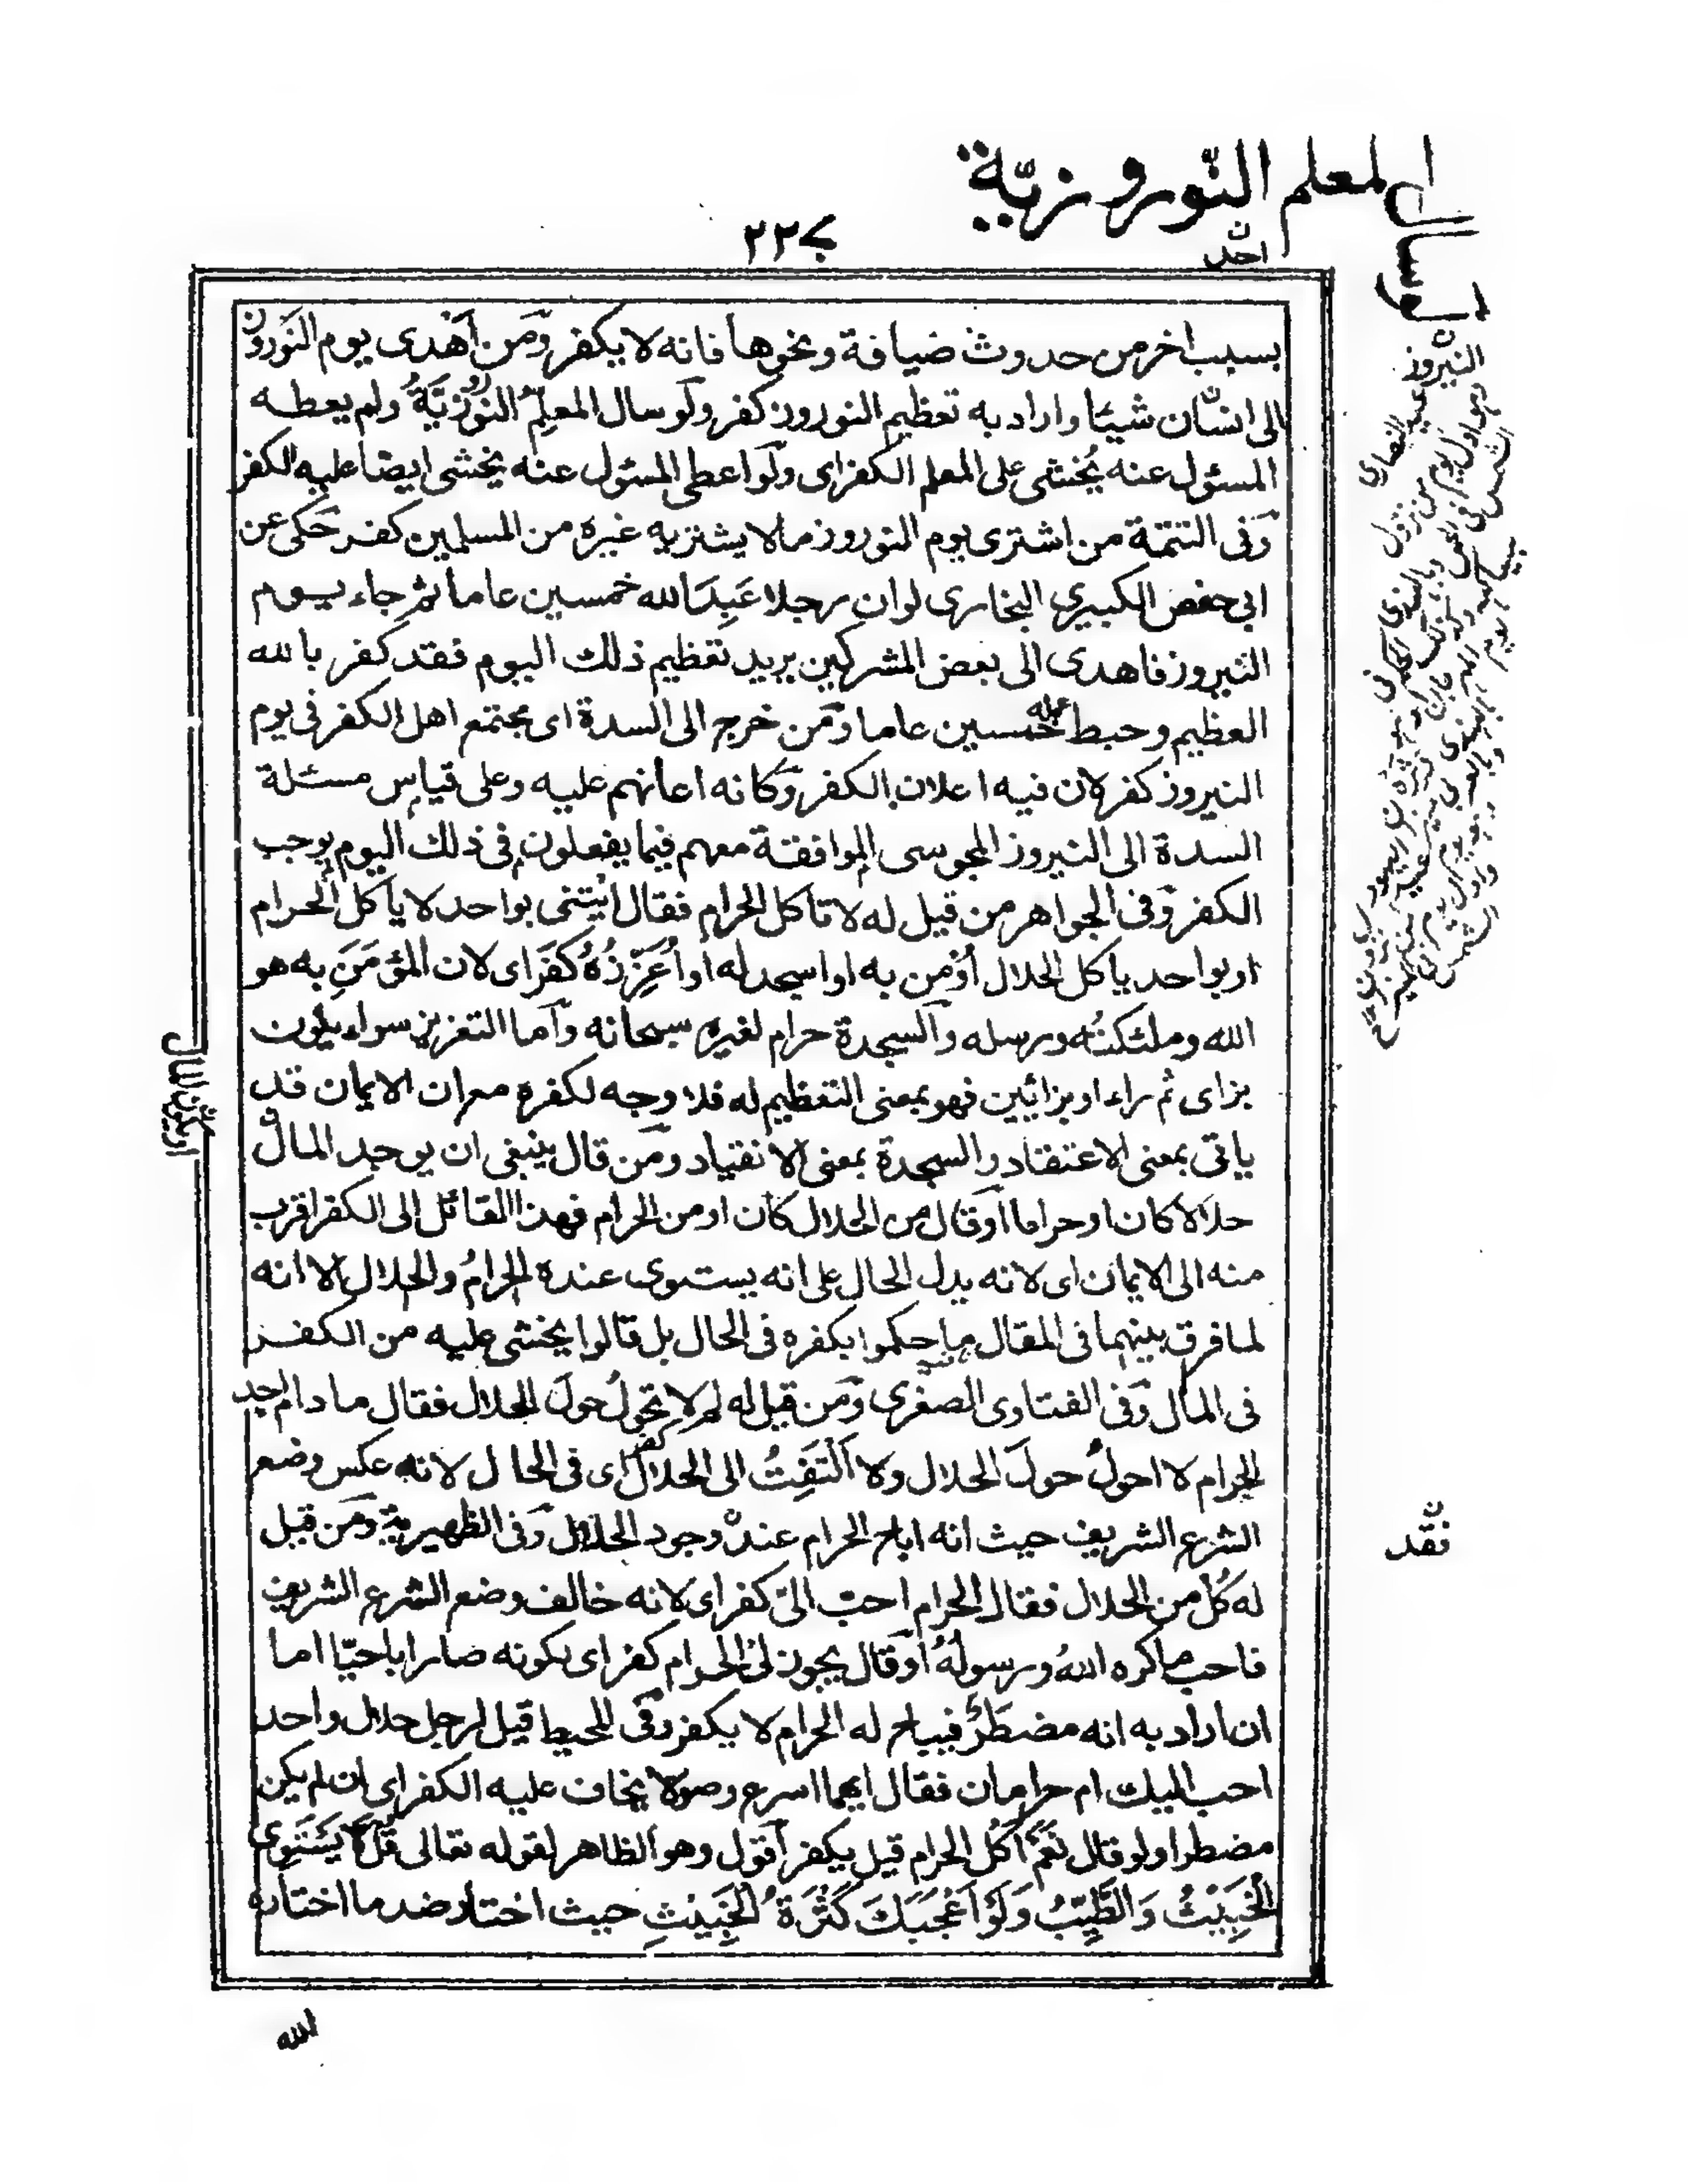 لوسال المعلم النوروزيّة
٢٢٧
احد
بسبب اخر من حدوث ضيافة ونحوها فانه لا يكفر ومن اهدى يوم النوروز
الى انسان شيئا واراد به تعظيم النوروز كفر ولو سال المعلم النوروزيّة ولم يعطه
المسئول عنه يُخشى على المعلم الكفر اى ولو اعطى المسئول عنه يخشى ايضا عليه الكفر
وفى التتمة من اشترى يوم النوروز ما لا يشتريه غيره من المسلمين كفر حكى عن
ابى حفص الكبيرى البخارى لو ان رجلا عَبِدَ الله خمسين عاما ثم جاء يوم
النيروز فاهدى الى بعض المشركين يريد تعظيم ذلك اليوم فقد كفر بالله
العظيم وحبط عمله خمسين عاما ومن خرج الى السدة اى مجتمع اهل الكفر فى يوم
النيروز كفر لان فيه اعلان الكفر وكانه اعانهم عليه وعلى قياس مسئلة
السدة الى النيروز المجوسى الموافقة معهم فيما يفعلون فى ذلك اليوم يوجب
الكفر وفى الجواهر من قيل له لا تاكل الحرام فقال ايتنى بواحد لا ياكل الحرام
او بواحد ياكل الحلال اؤمن به او اسجد له او اُعَزِّزُهُ كفر اى لان المؤمَنَ به هو
الله وملئكتُه ورسله والسجدة حرام لغيره سبحانه واما التعزيز سواء يكون
بزاى ثم راء او بزائين فهو بمعنى التعظيم له فلا وجه لكفره مع ان الايمان قد
ياتى بمعنى الاعتقاد والسجدة بمعنى الانقياد ومن قال ينبغى ان يوجد المال
حلالا كان او حراما او قال من الحلال كان او من الحرام فهذا القائل الى الكفر اقرب
منه الى الايمان اى لانه يدل الحال على انه يستوى عنده الحرامُ والحلال الا انه
لما فرق بينهما فى المقال ما حكموا بكفره فى الحال بل قالوا يخشى عليه من الكفر
فى المال وفى الفتاوى الصغرى ومن قيل له لم لا تحولُ حولَ الحلال فقال ما دام اجد
الحرام لا احولُ حولَ الحلال ولا اَلْتَفِتُ الى الحلال كفر اى فى الحال لانه عكس وضع
الشرع الشريف حيث انه اباح الحرام عند وجود الحلال وفى الظهيرية ومن قيل
له كُل من الحلال فقال الحرام احبّ الىّ كفر اى لانه خالف وضع الشرع الشريف
فاحب ما كره اللهُ ورسولُهُ او قال يجوز لى الحرام كفر اى لكونه صار اباحيّا اما
ان اراد به انه مضطَرٌ فيباح له الحرام لا يكفر وفى المحيط قيل لرجل حلال واحد
احب اليك ام حرامان فقال ايهما اسرع وصولا يخاف عليه الكفر اى ان لم يكن
مضطرا ولو قال نَعَم اكُل الحرام قيل يكفر اقول وهو الظاهر لقوله تعالى قُل لا يَسْتَوِى
الْخَبِيْثُ وَالطَّيِّبُ وَلَوْ اَعْجَبَكَ كَثْرَةُ الْخَبِيْثِ حيث اختار ضد ما اختاره
الله
النيروز
فقد